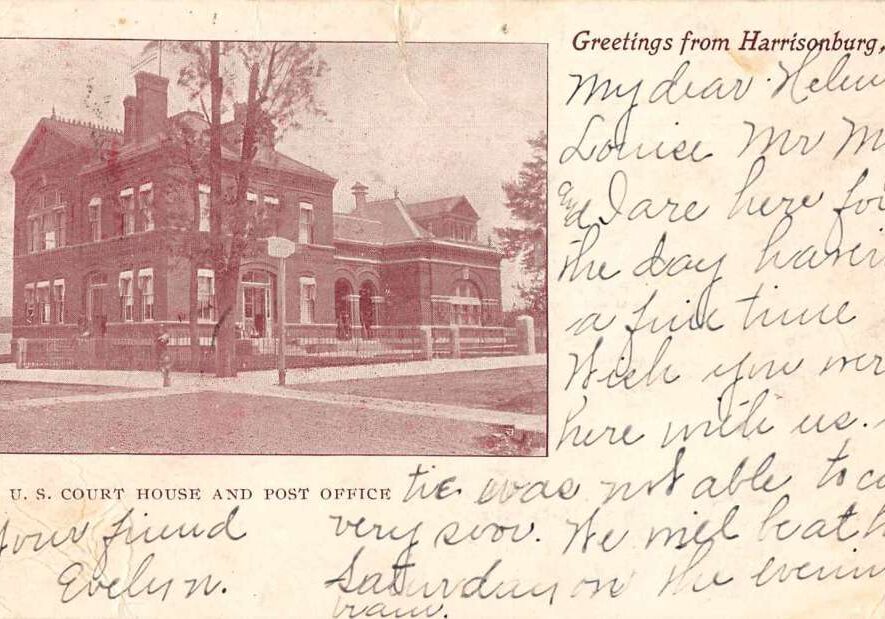 Greetings from Harrisonburg,
My dear Helen
Louise Mr
and I are here for
the day havin
a fine time
Wish you wer
here with us.
U. S. COURT HOUSE AND POST OFFICE
tie was not able to co
very soon. We will be at h
Saturday on the evenin
train.
Your friend
Evelyn.